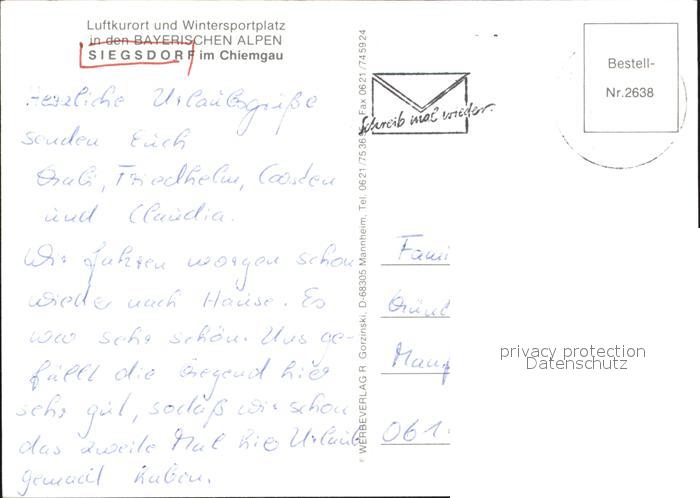 Luftkurort und Wintersportplatz
in den BAYERISCHEN ALPEN
SIEGSDORF im Chiemgau
Herzliche Urlaubsgrüße
senden Euch
Friedhelm, Carsten
und Claudia.
Wir fahren morgen schon
wieder nach Hause. Es
war sehr schön. Uns ge-
fällt die Gegend hier
sehr gut, sodaß wir schon
das zweite Mal hier Urlaub
gemacht haben.
© WERBEVERLAG R. Gorzinski, D-68305 Mannheim, Tel. 0621/75368, Fax 0621/745924
Schreib mal wieder.
Bestell-
Nr.2638
Fami
Grünt
061
privacy protection
Datenschutz